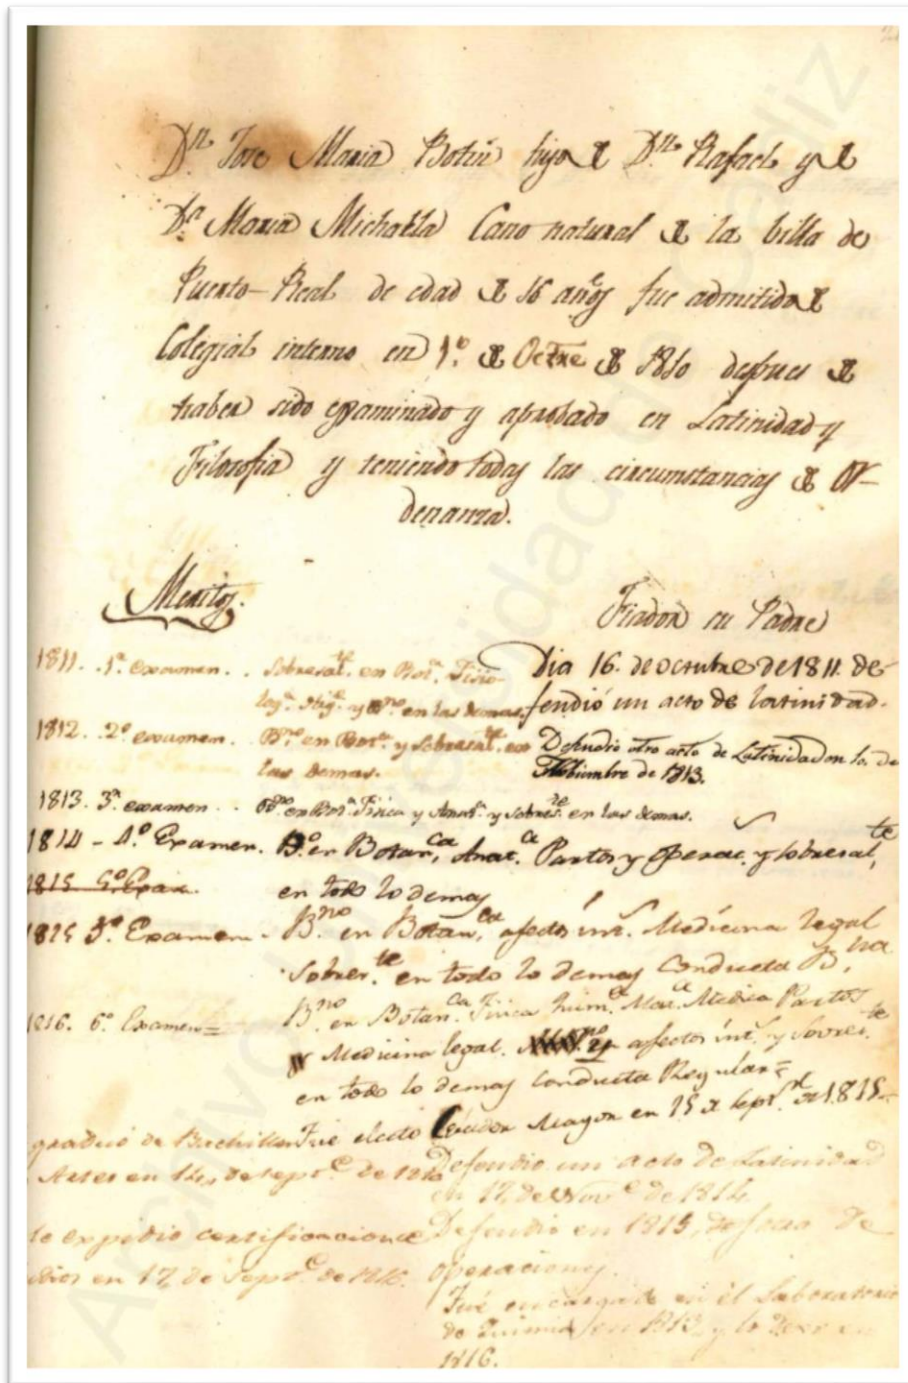 Dn. Jose Maria Botin hijo de Dn. Rafael y de
Da. Maria Michaela Cano natural de la billa de
Puerto-Real de edad de 16 años fue admitido de
Colegial interno en 1o. de Octre de 1810 despues de
haber sido examinado y aprobado en Latinidad y
Filosofia y teniendo todas las circumstancias de Or-
denanza.
Meritos.
Fiador su Padre
1811. .1n. examen. . Sobresalte. en Bota. Fisio-
loga. Higa. y Bno. en las demas.
Dia 16. de octubre de 1811. de-
fendió un acto de latinidad.
1812. .2o. examen. Bno. en Bota. y Sobresalte. en
las demas.
Defendio otro acto de Latinidad en 10. de
Nobiembre de 1813.
1813. 3n. examen . . Bno. en Bota. Fisica y Anata. y Sobreste. en las demas.
1814 - 4o. Examen. Bo. en Botanca, Anat.ca Partos y Operac. y sobresalte,
en todo lo demas
1815 5o. Exam.
1815 5o. Examen - Bno. en Botanca, afectos ints. Medicina legal
Sobreste. en todo lo demas Conducta Bna.
1816. 6o. Examen = Bno. en Botanca. Fisica Mata. Medica Partos
Medicina legal. y afectos ints. y Sovreste.
en todo lo demas Conducta Regular =
Fué electo Mayor en 15 de Septe. de 1815
graduó de Bachiller
Artes en 14 de Septe. de 1816
Defendio un acto de Latinidad
en 12 de Nove. de 1814
Defendio en 1815, de
operaciones.
le expidio certificacion de
en 17 de Septe. de 1816.
Fué encargado en el Laboratorio
de Quimica en 1813, y lo
1816.
Archivo Universidad de Cadiz